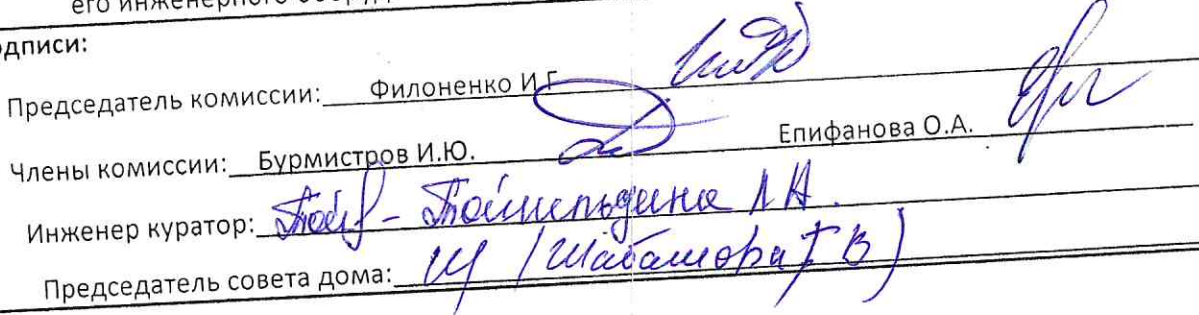 его инженерного
одписи:
Председатель комиссии: Филоненко И.Г.
Члены комиссии: Бурмистров И.Ю. Епифанова О.А.
Инженер куратор: Л А.
Председатель совета дома: Т В)